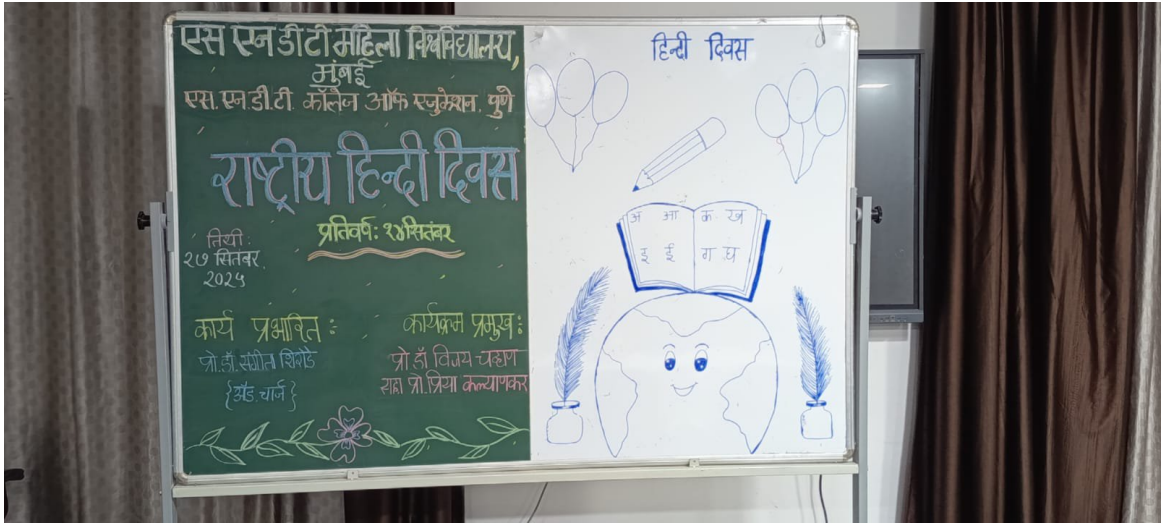 एस एन डी टी महिला विश्वविद्यालय,
मुंबई
एस. एन. डी. टी. कॉलेज ऑफ एजुकेशन, पुणे
राष्ट्रीय हिन्दी दिवस
प्रतिवर्ष: १४ सितंबर
तिथी:
२७ सितंबर,
२०२५
कार्य प्रभारित:
प्रो. डॉ. संगीता शिरोडे
{अँड. चार्ज}
कार्यक्रम प्रमुख:
प्रो डॉ विजय चव्हाण
साहा प्रो. प्रिया कल्याणकर
हिन्दी दिवस
अ आ क ख
इ ई ग घ